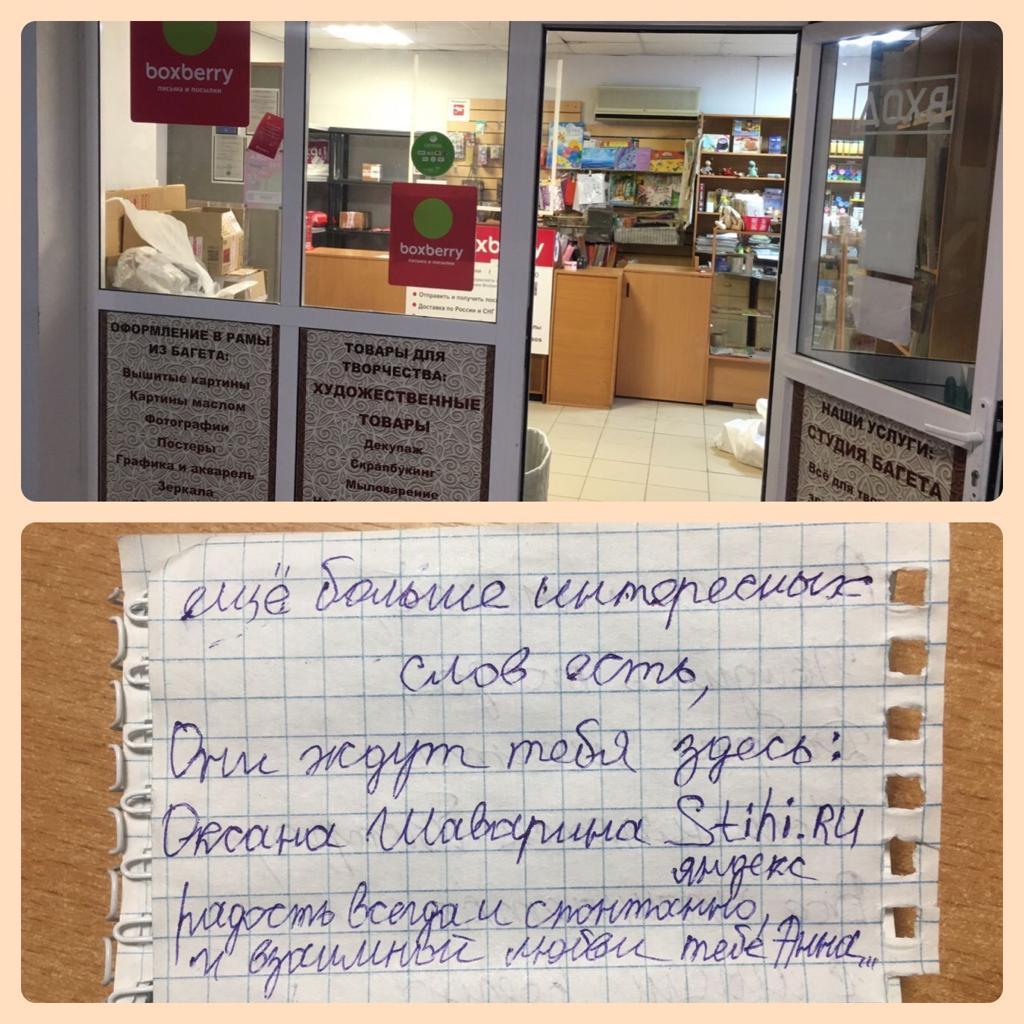 boxberry
письма и посылки
boxberry
письма и посылки
Отправить и получить
Доставка по России и СНГ
ВХОД
ОФОРМЛЕНИЕ В РАМЫ
ИЗ БАГЕТА:
Вышитые картины
Картины маслом
Фотографии
Постеры
Графика и акварель
Зеркала
ТОВАРЫ ДЛЯ
ТВОРЧЕСТВА:
ХУДОЖЕСТВЕННЫЕ
ТОВАРЫ
Декупаж
Скрапбукинг
Мыловарение
НАШИ УСЛУГИ:
СТУДИЯ БАГЕТА
Всё для
ещё больше интересных
слов есть,
Они ждут тебя здесь:
Оксана Шаварина Stihi.RU
яндекс
радость всегда и спонтанно,
и взаимной любви тебе, Анна...